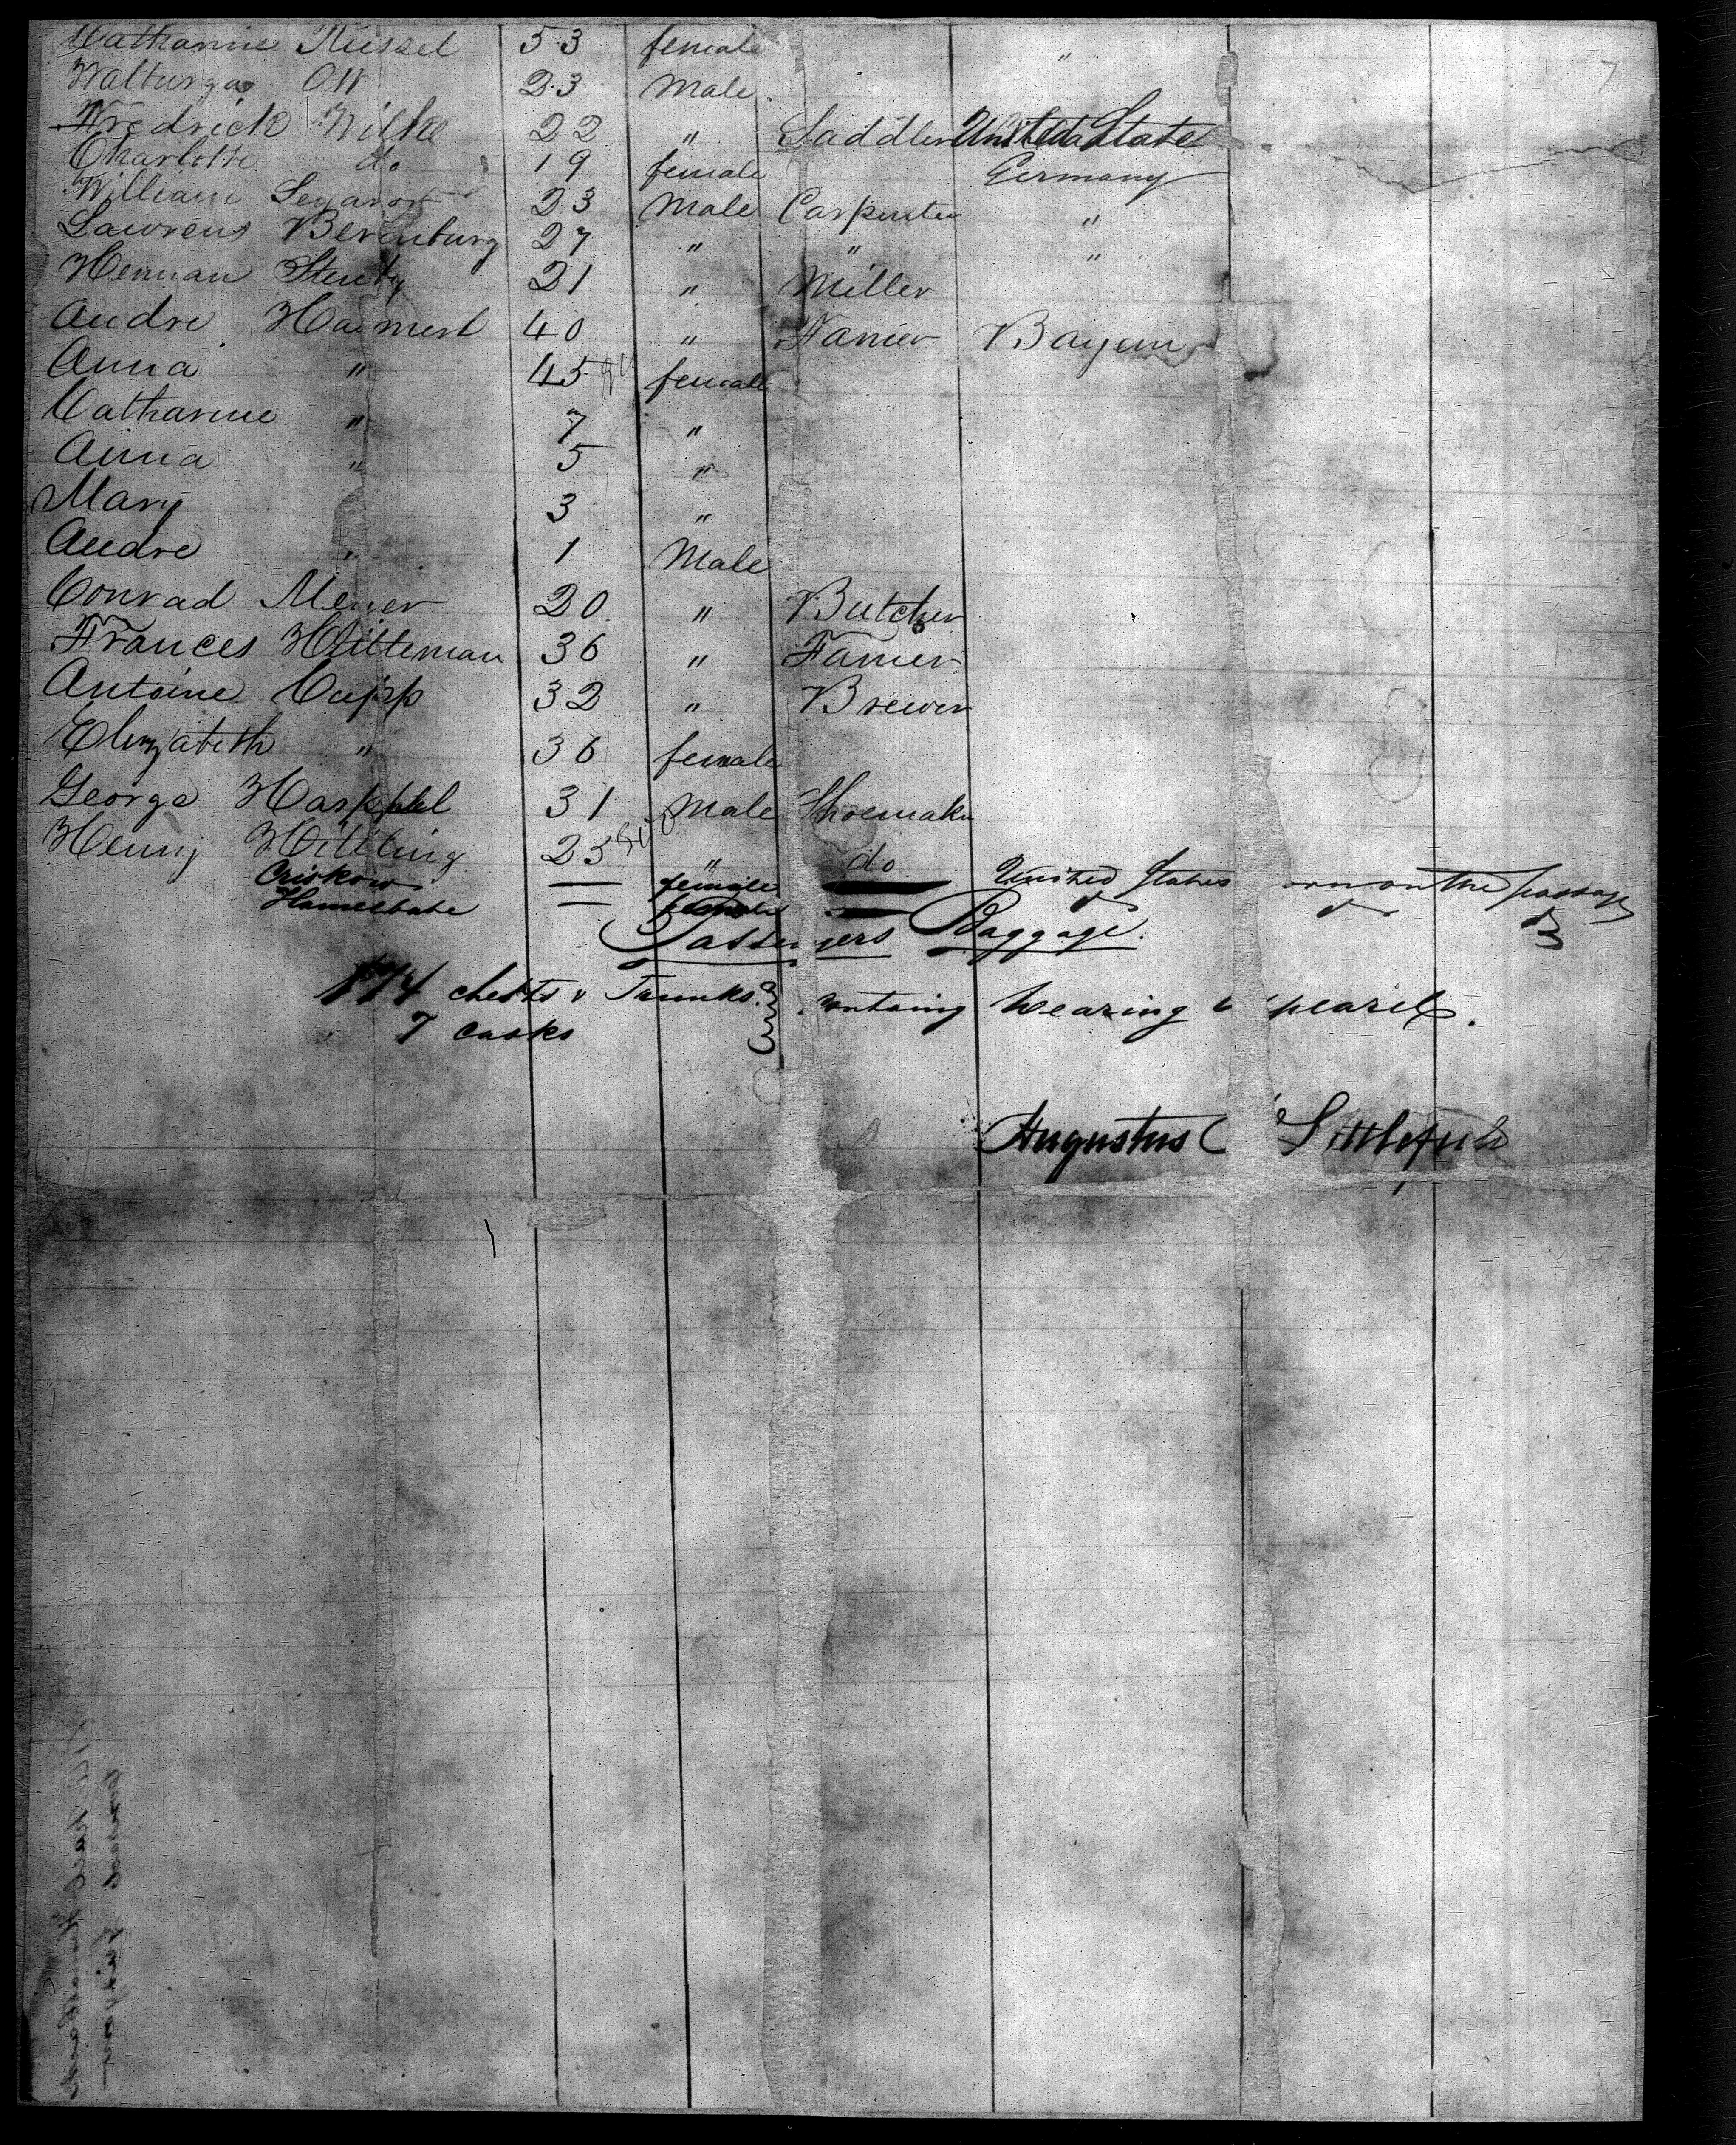 7
Catharine Kussel 53 female "
Walturga Ott 23 Male
Fredrick Wilke 22 " Saddler United States
Charlotte do 19 female Germany
William 23 Male Carpenter "
Lawrens Berenburg 27 " " "
Herman 21 " Miller
Andre 40 " Farmer Bayern
Anna " 45 female
Catharine " 7 "
Anna " 5 "
Mary 3 "
Andre " 1 Male
Conrad Meyer 20 " Butcher
Frances Hitteman 36 " Farmer
Antoine Cupp 32 " Brewer
Elizabeth " 36 female
George Harppel 31 Male Shoemaker
Henry 23 " do
— female United States born on the passage
— female do do do
Passengers Baggage.
174 chests & Trunks
7 casks
containg wearing apparel.
Augustus Littlefield